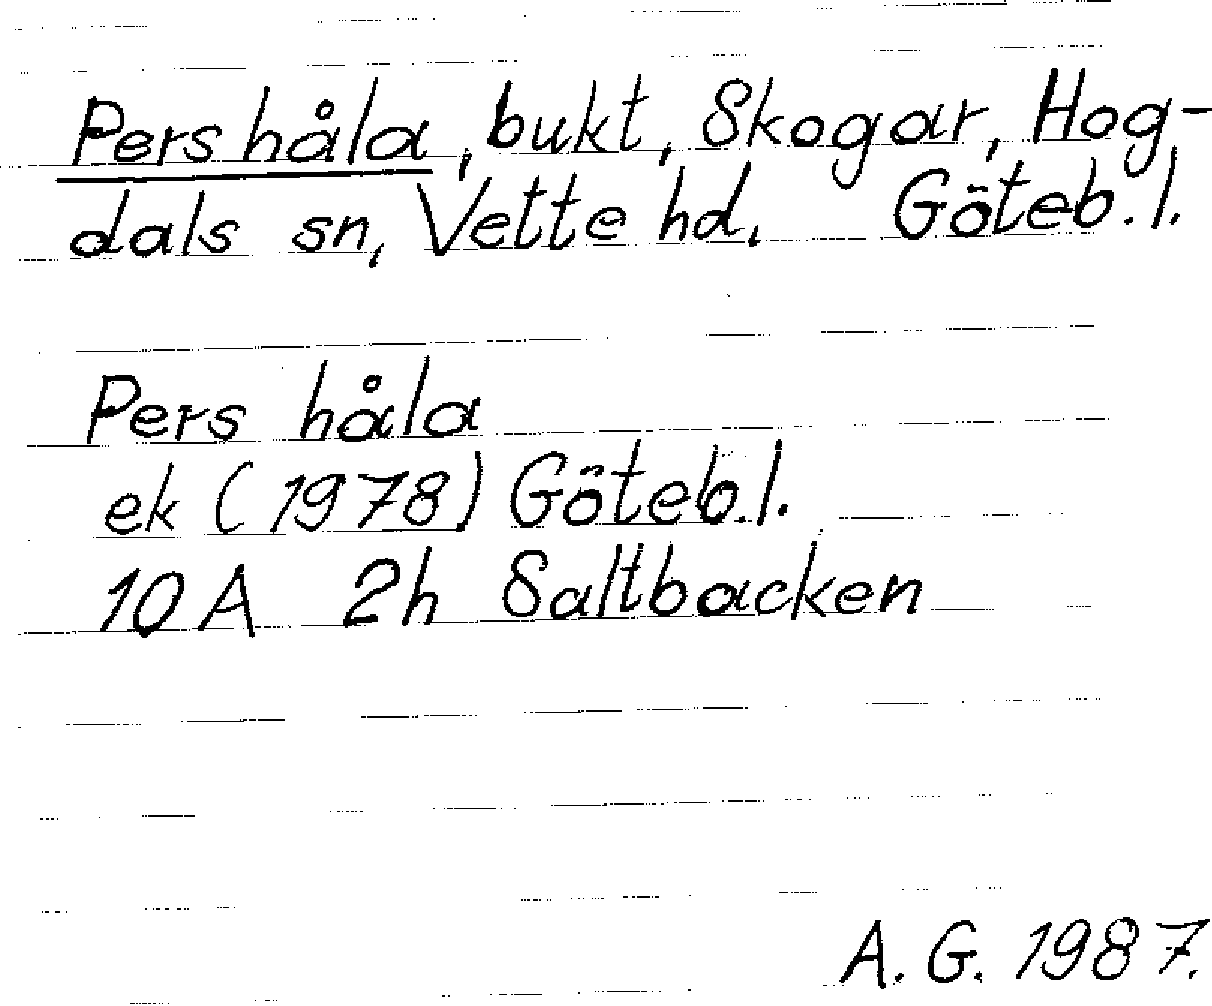 Pers håla, bukt, Skogar, Hog-
dals sn, Vette hd. Göteb.l.
Pers håla
ek (1978) Göteb.l.
10A 2h Saltbacken
A.G. 1987.